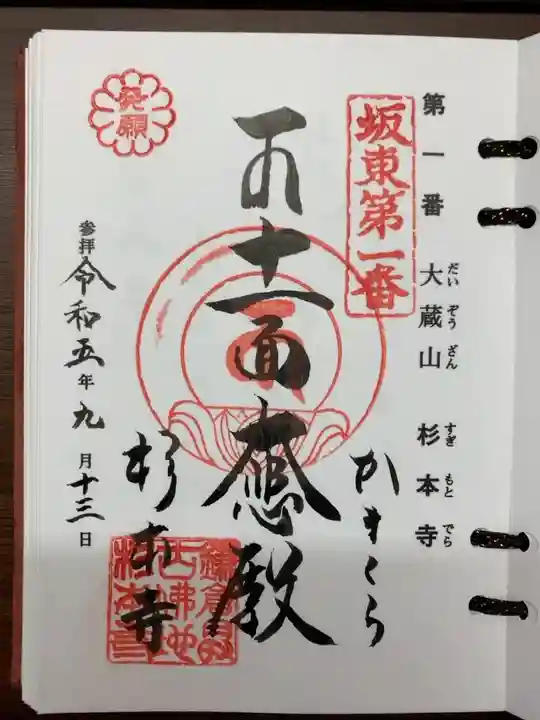 第一番 大蔵山 杉本寺
だいぞうざん すぎもとでら
坂東第一番
かまくら
十一面大悲殿
杉本寺
発願
参拝 令和五年九月十三日